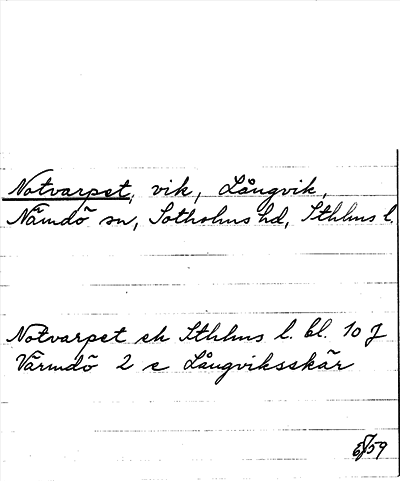 Notvarpet, vik, Långvik,
Nämdö sn, Sotholms hd, Sthlms l.
Notvarpet ek Sthlms l. bl. 10 J
Värmdö 2 c Långviksskär
59